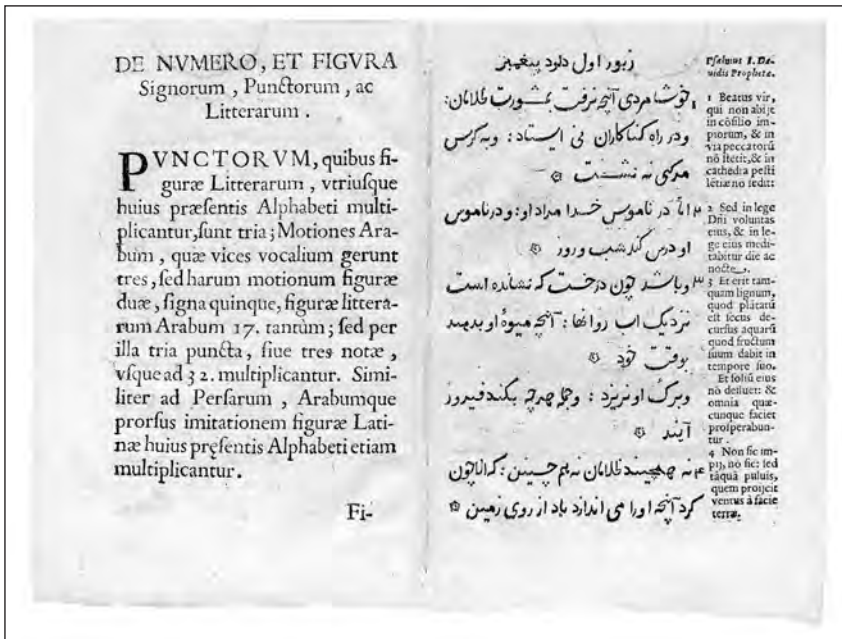 DE NVMERO, ET FIGVRA
Signorum, Punctorum, ac
Litterarum.
PVNCTORVM, quibus fi-
guræ Litterarum, vtriuſque
huius præſentis Alphabeti multi-
plicantur, ſunt tria; Motiones Ara-
bum, quæ vices vocalium gerunt
tres, ſed harum motionum figuræ
duæ, ſigna quinque, figuræ littera-
rum Arabum 17. tantùm; ſed per
illa tria puncta, ſiue tres notæ,
vſque ad 32. multiplicantur. Simi-
liter ad Perſarum, Arabumque
prorſus imitationem figuræ Lati-
næ huius pręſentis Alphabeti etiam
multiplicantur.
Fi-
زبور اول داود پیغمبر
خوشا مردی آنچه نرفت بمشورت ظلامان:
ودر راه گناکاران نی ایستاد: وبه کرس
مرگی نه نشست
۲ امّا در ناموس خدا مراد او: ودر ناموس
او درس کند شب وروز
۳ وباشد چون درخت که نشانده است
نزدیک اب روانها: آنچه میوهٔ او بدهد
بوقت خود
وبرگ او نریزد: وجمله هرچه بکند فیروز
آیند
۴ نه همچنیند ظلامان نه هم چنین: که الا چون
کرد آنچه اورا می اندازد باد از روی زمین
Pſalmus I. Da-
uidis Prophetæ.
1 Beatus vir,
qui non abijt
in cōſilio im-
piorum, & in
via peccatorū
nō ſtetit, & in
cathedra peſti
lētiæ no ſedit:
2 Sed in lege
Dñi voluntas
eius, & in le-
ge eius medi-
tabitur die ac
nocte.
3 Et erit tam-
quam lignum,
quod plātatū
eſt ſecus de-
curſus aquarū
quod fructum
ſuum dabit in
tempore ſuo.
Et foliū eius
nō defluet: &
omnia quæ-
cunque faciet
proſperabun-
tur.
4 Non ſic im-
pij, nō ſic: ſed
tāquā puluis,
quem proijcit
ventus à facie
terræ.